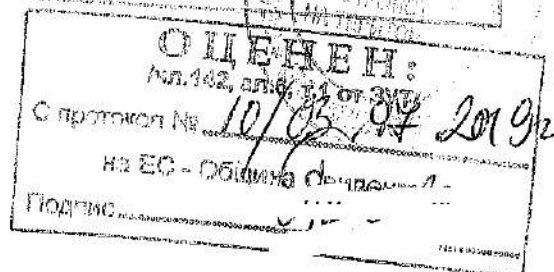 ОЦЕНЕН:
/чл.142, ал.6, т.1 от ЗУТ/
С протокол № 10/03.07 2019г
на ЕС - Община
Подпис